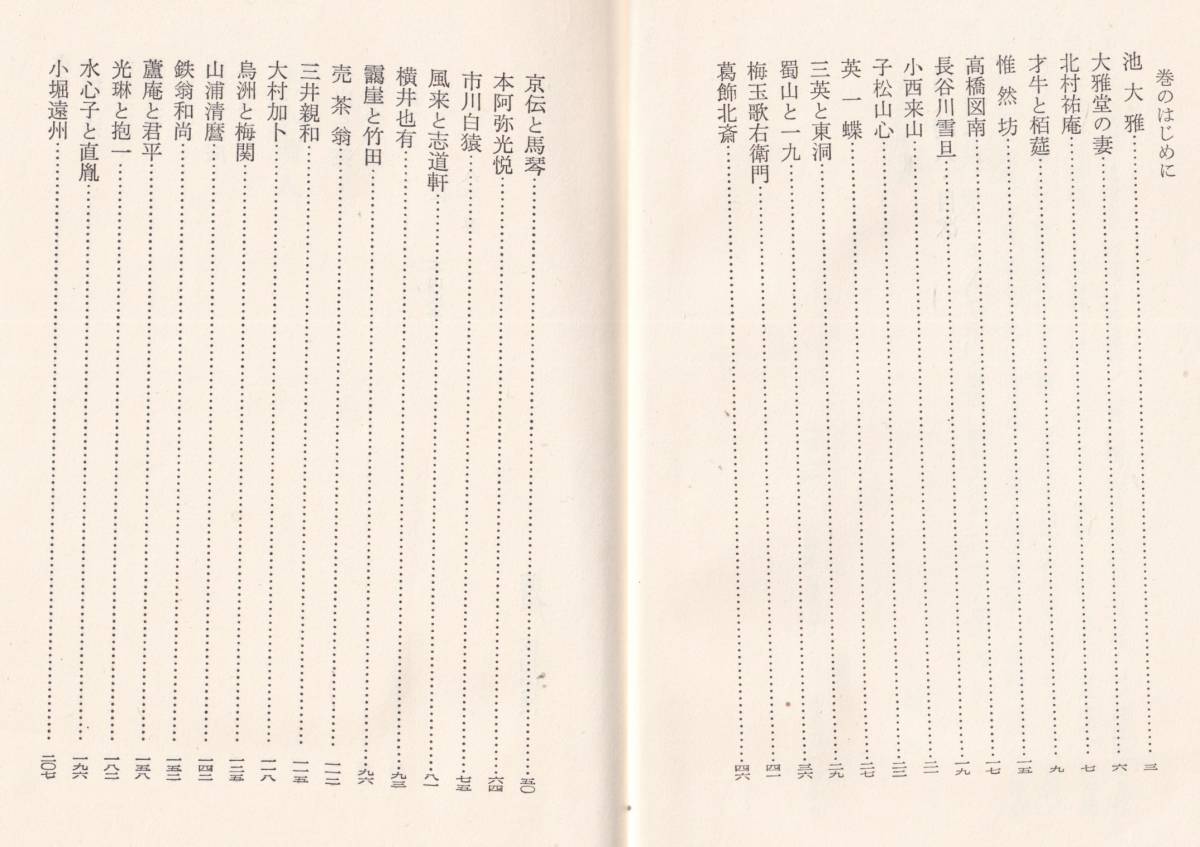 巻のはじめに
池大雅……三
大雅堂の妻……六
北村祐庵……九
才牛と栢莚……九
惟然坊……一五
高橋図南……一七
長谷川雪旦……一九
小西来山……二一
子松山心……二三
英一蝶……二七
三英と東洞……二九
蜀山と一九……三六
梅玉歌右衛門……四一
葛飾北斎……四六
京伝と馬琴……五〇
本阿弥光悦……六四
市川白猿……七五
風来と志道軒……八一
横井也有……九三
靄崖と竹田……九六
売茶翁……一一二
三井親和……一一五
大村加卜……一一八
烏洲と梅関……一二五
山浦清麿……一四二
鉄翁和尚……一五二
蘆庵と君平……一五八
光琳と抱一……一八二
水心子と直胤……一九六
小堀遠州……二〇七